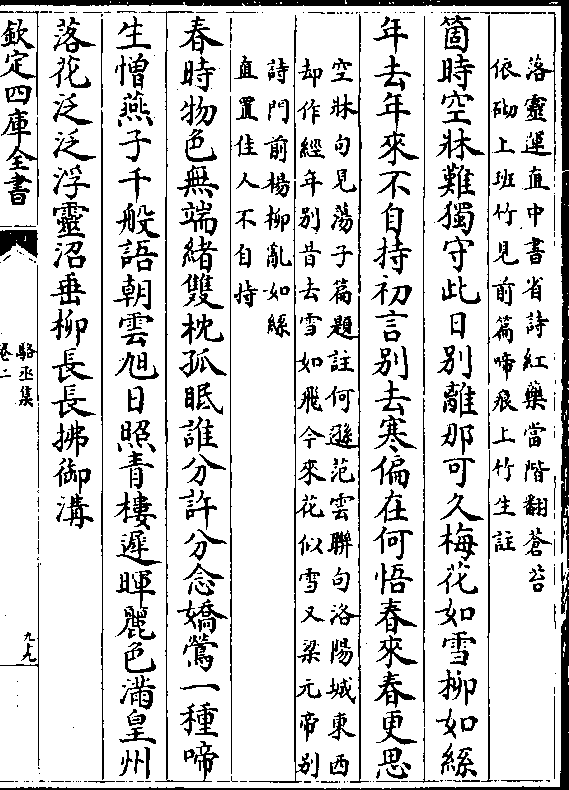 落靈運直中書省詩紅藥當階翻蒼苔
依砌上班竹見前篇啼痕上竹生註
箇時空牀難獨守此日别離那可久梅花如雪柳如絲
年去年來不自持初言别去寒偏在何悟春來春更思
空牀句見蕩子篇題註何遜范雲聯句洛陽城東西
却作經年别昔去雪如飛今來花似雪又梁元帝别
詩門前楊柳亂如絲
直置佳人不自持
春時物色無端緒雙枕孤眠誰分許分念嬌鶯一種啼
生憎燕子千般語朝雲旭日照青樓遲暉麗色滿皇州
落花泛泛浮靈沼垂柳長長拂御溝
欽定四庫全書
駱丞集
卷二
九十九